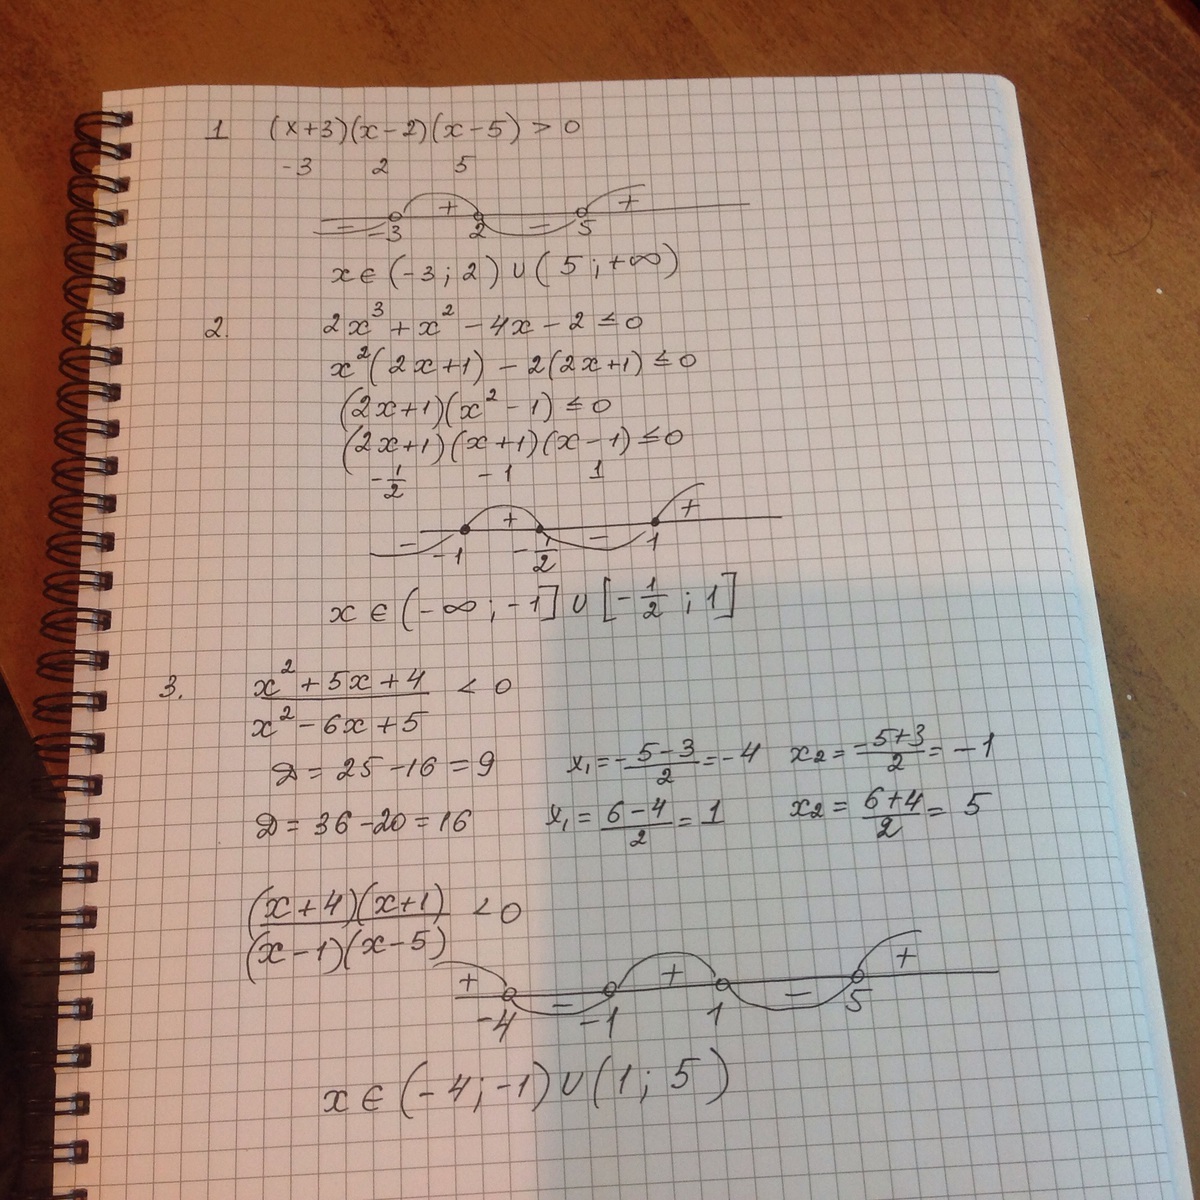 1 (x+3)(x-2)(x-5) > 0
-3 2 5
- + - +
-3 2 5
x ∈ (-3; 2) ∪ (5; +∞)
2. 2x³ + x² - 4x - 2 ≤ 0
x²(2x+1) - 2(2x+1) ≤ 0
(2x+1)(x² - 1) ≤ 0
(2x+1)(x+1)(x-1) ≤ 0
-1/2 -1 1
- + - +
-1 -1/2 1
x ∈ (-∞; -1] ∪ [-1/2; 1]
3. (x² + 5x + 4)/(x² - 6x + 5) < 0
Д = 25 - 16 = 9 x₁ = (-5-3)/2 = -4 x₂ = (-5+3)/2 = -1
Д = 36 - 20 = 16 x₁ = (6-4)/2 = 1 x₂ = (6+4)/2 = 5
((x+4)(x+1))/((x-1)(x-5)) < 0
+ - + - +
-4 -1 1 5
x ∈ (-4; -1) ∪ (1; 5)